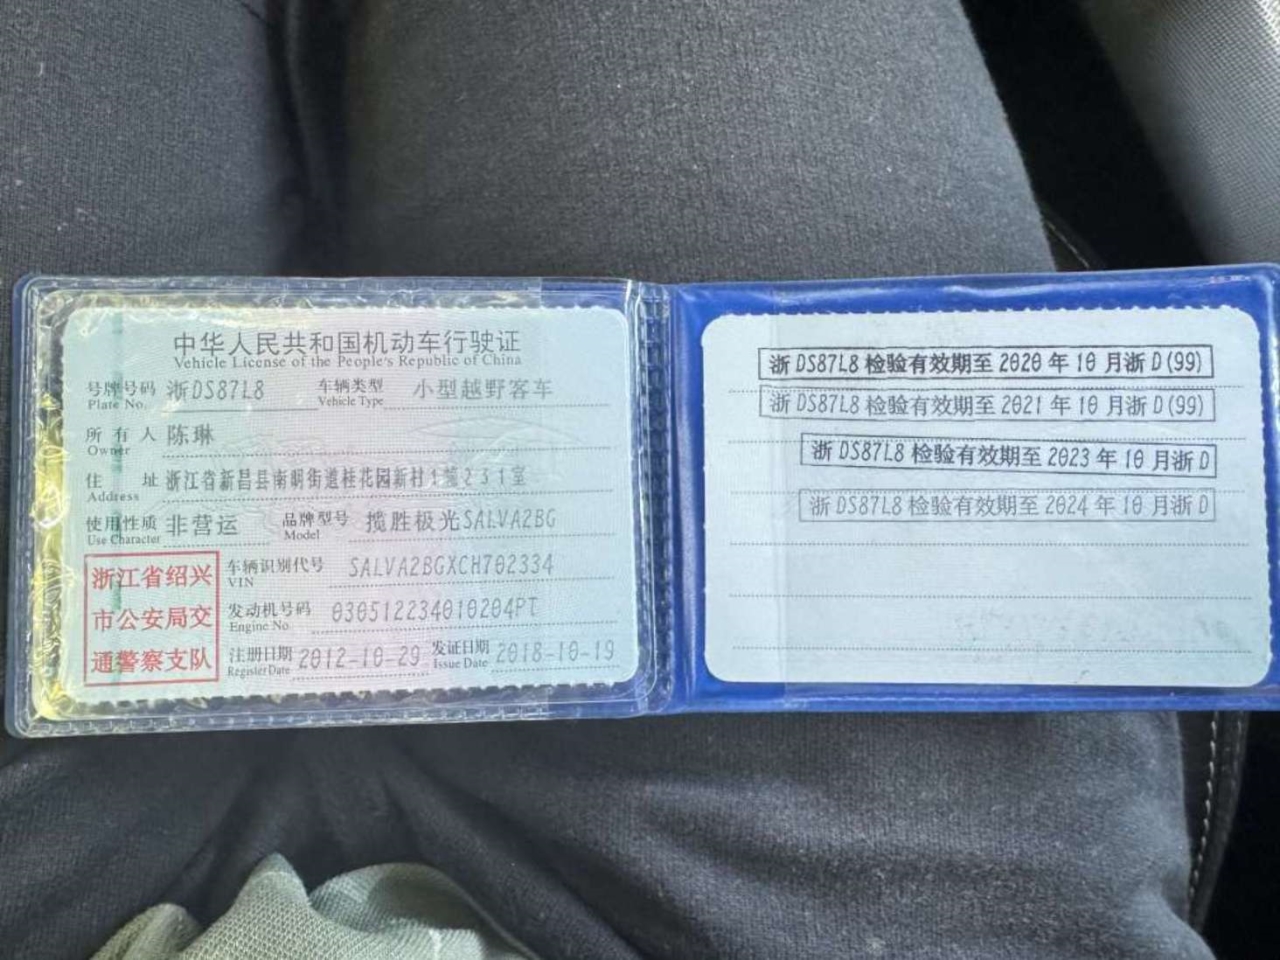 中华人民共和国机动车行驶证
Vehicle License of the People's Republic of China
号牌号码 浙DS87L8 车辆类型 小型越野客车
Plate No. Vehicle Type
所有人 陈琳
Owner
住址 浙江省新昌县南明街道桂花园新村1幢231室
Address
使用性质 非营运 品牌型号 揽胜极光SALVA2BG
Use Character Model
浙江省绍兴
市公安局交
通警察支队
车辆识别代号 SALVA2BGXCH702334
VIN
发动机号码 030512234010204PT
Engine No.
注册日期 2012-10-29 发证日期 2018-10-19
Register Date Issue Date
浙DS87L8检验有效期至2020年10月浙D(99)
浙DS87L8检验有效期至2021年10月浙D(99)
浙DS87L8检验有效期至2023年10月浙D
浙DS87L8检验有效期至2024年10月浙D